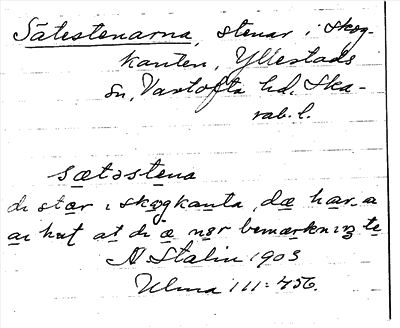 Sätestenarna, stenar i skog-
kanten, Yllestads
sn, Vartofta hd, Ska-
rab. l.
sætəstena
di stær i skogkanta, dæ har a
at di æ nør bemærkniŋ te
A Stalin 1903
Ulma 111:456.